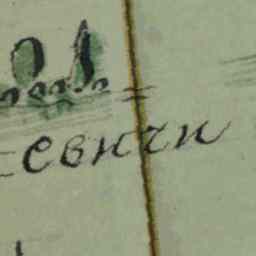 евичи